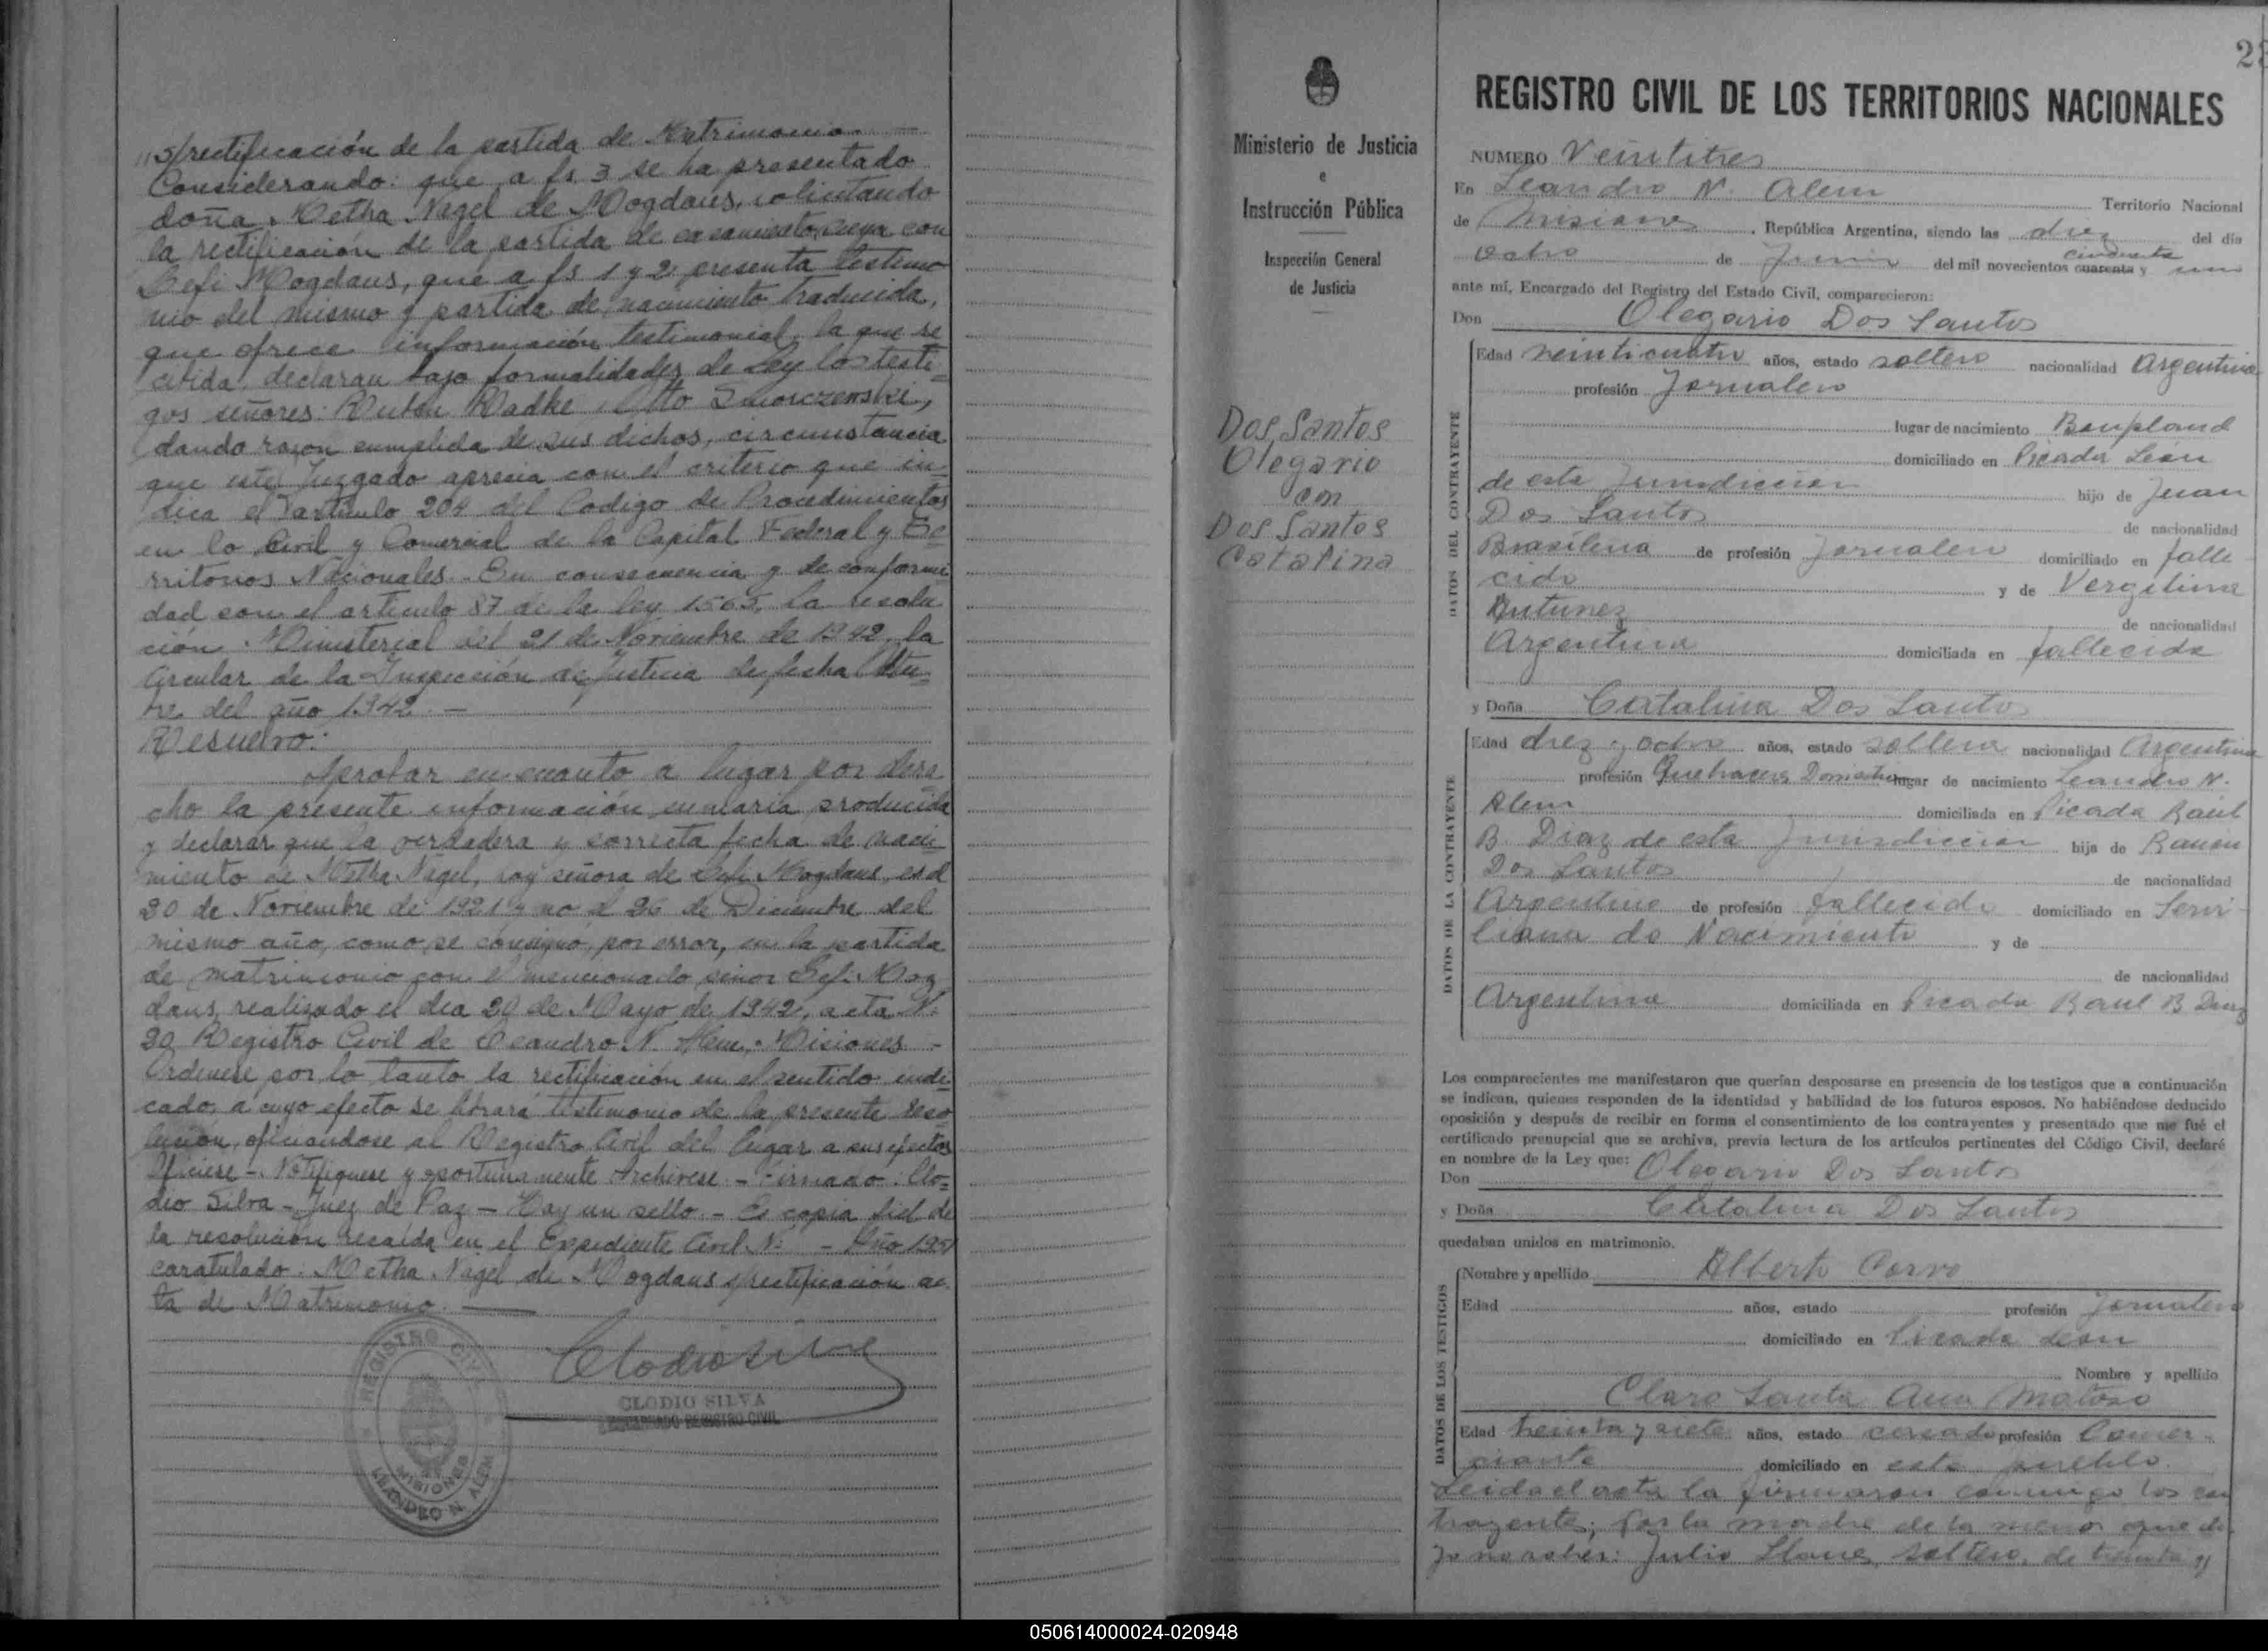 s/rectificación de la partida de Matrimonio. —
Considerando: que a fs. 3 se ha presentado
doña Metha Nagel de Mogdaus, solicitando
la rectificación de la partida de casamiento suya con
Gefi Mogdaus, que a fs 1 y 2 presenta testimo
nio del mismo y partida de nacimiento traducida,
que ofrece información testimonial, la que re
cibida declaran bajo formalidades de Ley los testi
gos señores: Ruben Radke, Otto
dando razon cumplida de sus dichos, circunstancia
que este Juzgado aprecia con el criterio que in
dica el artículo 204 del Codigo de Procedimientos
en lo Civil y Comercial de la Capital Federal y Te
rritorios Nacionales. En consecuencia y de conformi
dad con el artículo 87 de la ley 1565, la resolu
ción Ministerial del 21 de Noviembre de 1942, la
Circular de la Inspección de Justicia de fecha Octu
bre del año 1942. —
Resuelvo:
Aprobar en cuanto a lugar por dere
cho la presente información sumaria producida
y declarar que la verdadera y correcta fecha de naci
miento de Metha Nagel, hoy señora de Gefi Mogdaus, es el
20 de Noviembre de 1921 y no el 26 de Diciembre del
mismo año, como se consignó, por error, en la partida
de matrimonio con el mencionado señor Gefi Mog
daus, realizado el dia 20 de Mayo de 1942, acta N.
20 Registro Civil de Leandro N. Alem, Misiones. -
Ordenese por lo tanto la rectificación en el sentido indi
cado, a cuyo efecto se librará testimonio de la presente reso
lución, oficiandose al Registro Civil del lugar a sus efectos
Ofíciese - Notifiquese y oportunamente Archivese - Firmado: Clo=
dio Silva - Juez de Paz - Hay un sello - Es copia fiel de
la resolución recaída en el Expediente Civil Nº - Año 1951
caratulado: Metha Nagel de Mogdaus s/rectificación ac
ta de Matrimonio. —
Clodio Silva
CLODIO SILVA
ENCARGADO REGISTRO CIVIL
REGISTRO CIVIL
MISIONES
LEANDRO N. ALEM
Ministerio de Justicia
e
Instrucción Pública
Inspección General
de Justicia
Dos Santos
Olegario
con
Dos Santos
Catalina
23
REGISTRO CIVIL DE LOS TERRITORIOS NACIONALES
NUMERO Veintitres
En Leandro N. Alem Territorio Nacional
de Misiones, República Argentina, siendo las diez del día
ocho de Junio del mil novecientos cuarenta y cincuenta uno
ante mí, Encargado del Registro del Estado Civil, comparecieron:
Don Olegario Dos Santos
DATOS DEL CONTRAYENTE
Edad veinticuatro años, estado soltero nacionalidad Argentina
profesión Jornalero
lugar de nacimiento Bonpland
domiciliado en Picada León
de esta Jurisdiccion hijo de Juan
Dos Santos de nacionalidad
Brasilena de profesión Jornalero domiciliado en falle
cido y de Vergilina
Antunez de nacionalidad
Argentina domiciliada en fallecida
y Doña Catalina Dos Santos
DATOS DE LA CONTRAYENTE
Edad diez y ocho años, estado soltera nacionalidad Argentina
profesión Quehaceres Domesticos lugar de nacimiento Leandro N.
Alem domiciliada en Picada Raúl
B. Diaz de esta Jurisdiccion hija de Ramon
Dos Santos de nacionalidad
Argentino de profesión fallecido domiciliado en Servi
liana do Nacimiento y de
de nacionalidad
Argentina domiciliada en Picada Raul B Diaz
Los comparecientes me manifestaron que querían desposarse en presencia de los testigos que a continuación
se indican, quienes responden de la identidad y habilidad de los futuros esposos. No habiéndose deducido
oposición y después de recibir en forma el consentimiento de los contrayentes y presentado que me fué el
certificado prenupcial que se archiva, previa lectura de los artículos pertinentes del Código Civil, declaré
en nombre de la Ley que:
Don Olegario Dos Santos
y Doña Catalina Dos Santos
quedaban unidos en matrimonio.
DATOS DE LOS TESTIGOS
Nombre y apellido Alberto Corvo
Edad años, estado profesión Jornalero
domiciliado en Picada León
Nombre y apellido
Claro Santa Ana Matoso
Edad treinta y siete años, estado casado profesión Comer-
ciante domiciliado en este pueblo.
Leida el acta la firmaron conmigo los con
trayente; por la madre de la menor que di
jo no saber: Julio Llane, soltero, de treinta y
050614000024-020948